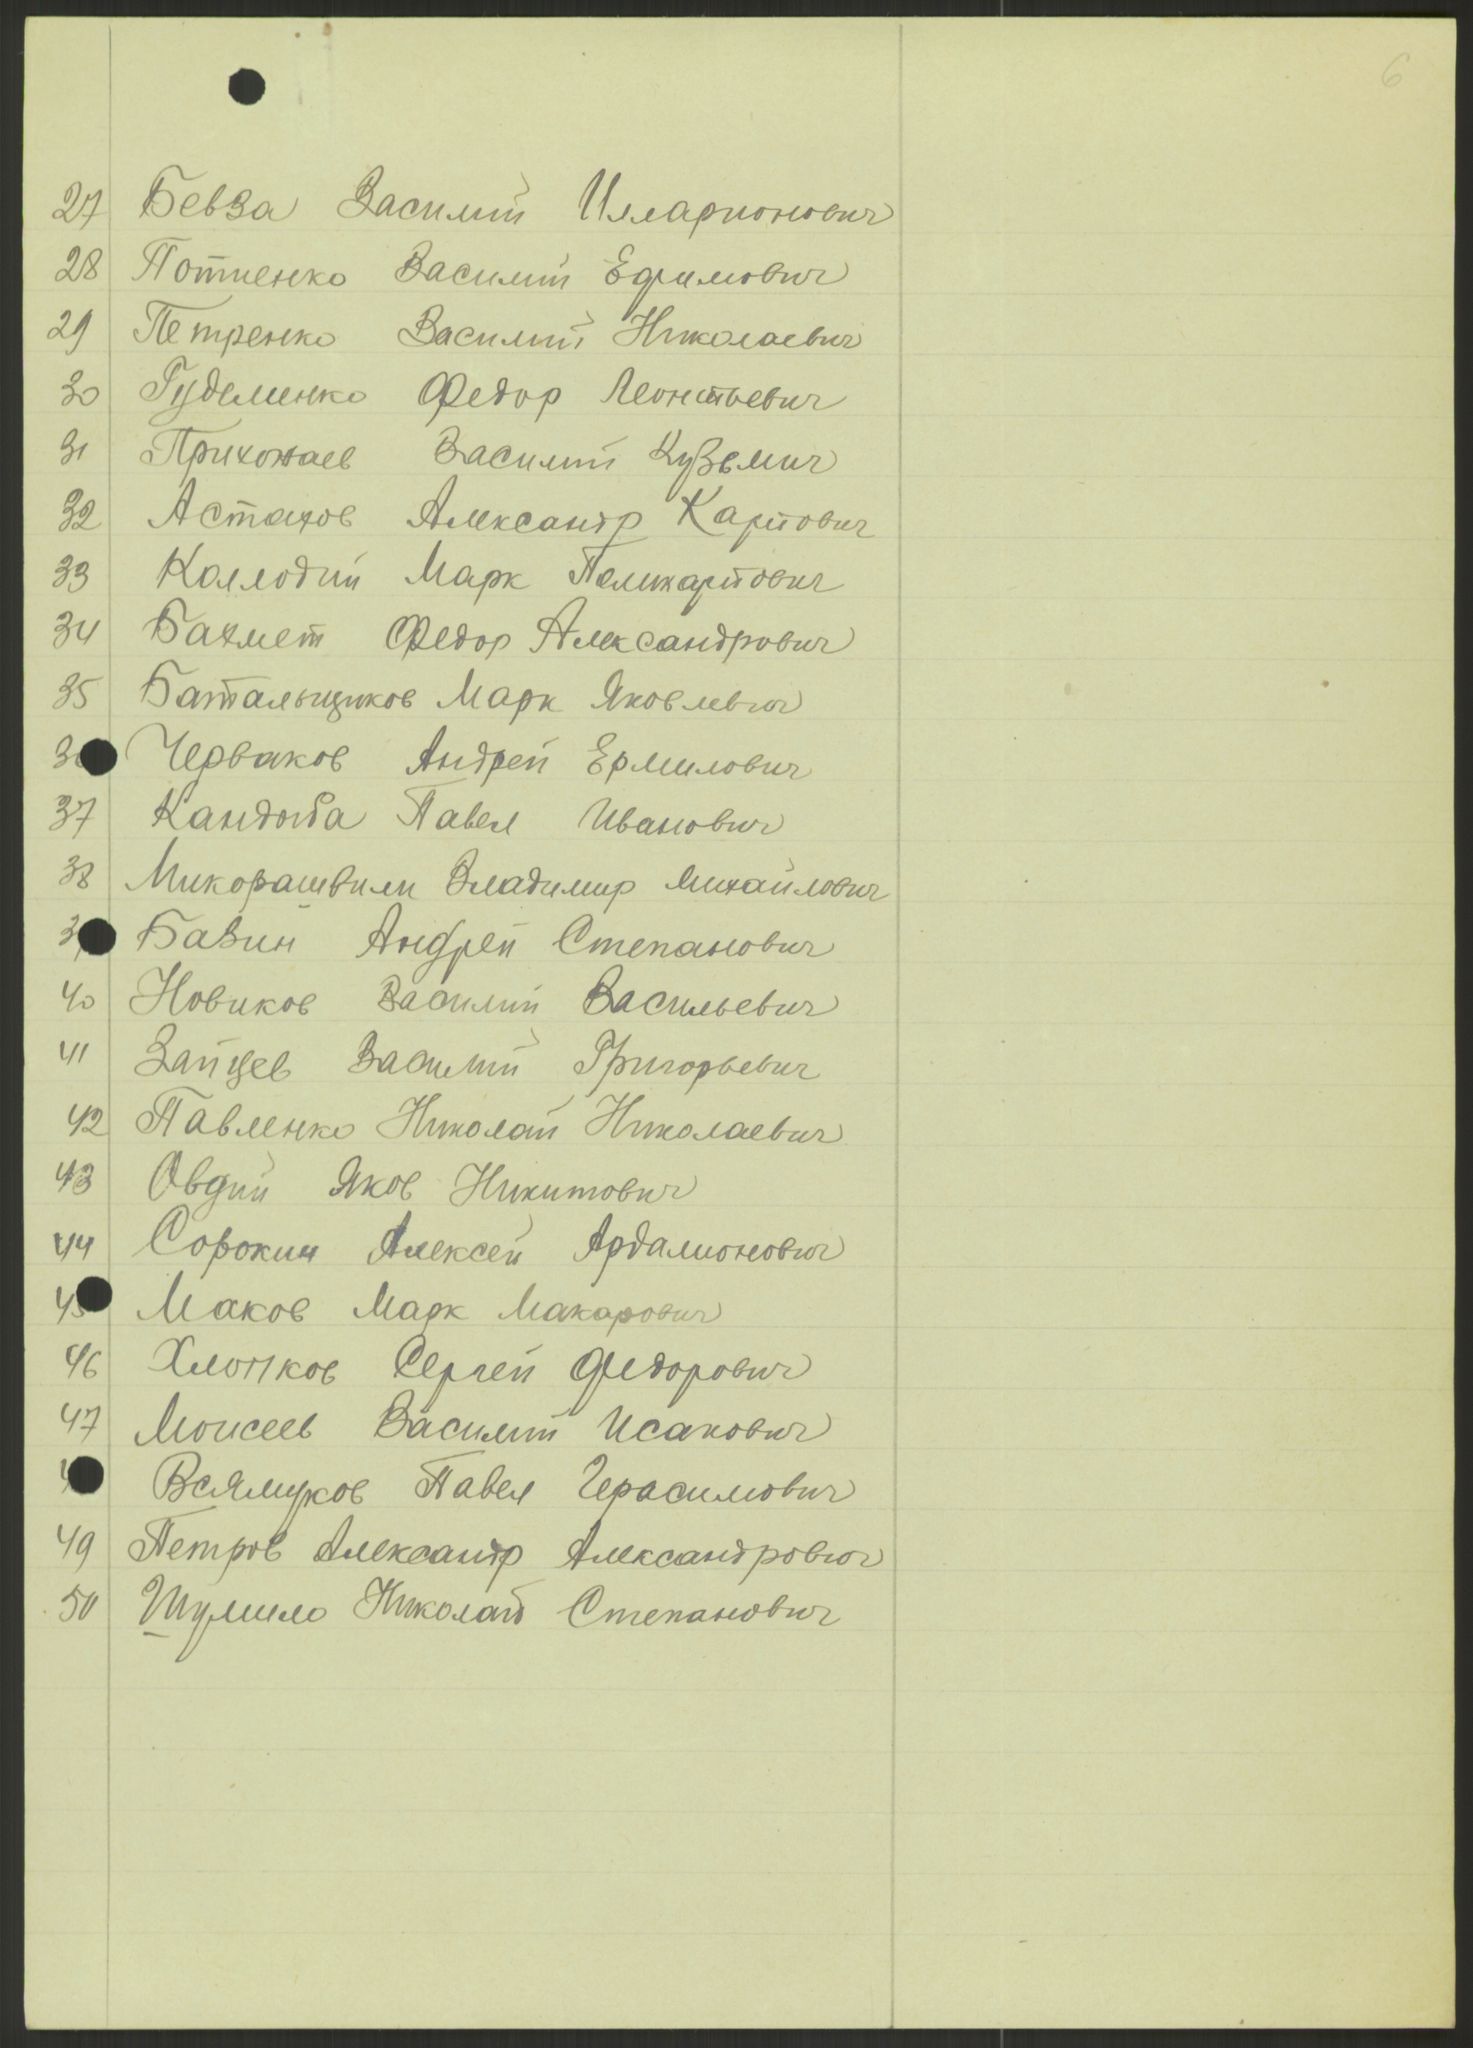 6
27 Бевза Василий Илларионович
28 Потиенко Василий Ефимович
29 Петренко Василий Николаевич
30 Гуделенко Федор Леонтьевич
31 Прихожаев Василий Кузьмич
32 Астахов Александр Карпович
33 Коллодий Марк Поликарпович
34 Бахмет Федор Александрович
35 Батальщиков Марк Яковлевич
36 Черваков Андрей Ермилович
37 Кандыба Павел Иванович
38 Микорашвили Владимир Михайлович
3 Бавин Андрей Степанович
40 Новиков Василий Васильевич
41 Зайцев Василий Григорьевич
42 Павленко Николай Николаевич
43 Овдий Яков Никитович
44 Сорокин Алексей Ардалионович
45 Маков Марк Макарович
46 Хлопков Сергей Федорович
47 Моисеев Василий Исакович
4 Павел Герасимович
49 Петров Александр Александрович
50 Шумило Николай Степанович